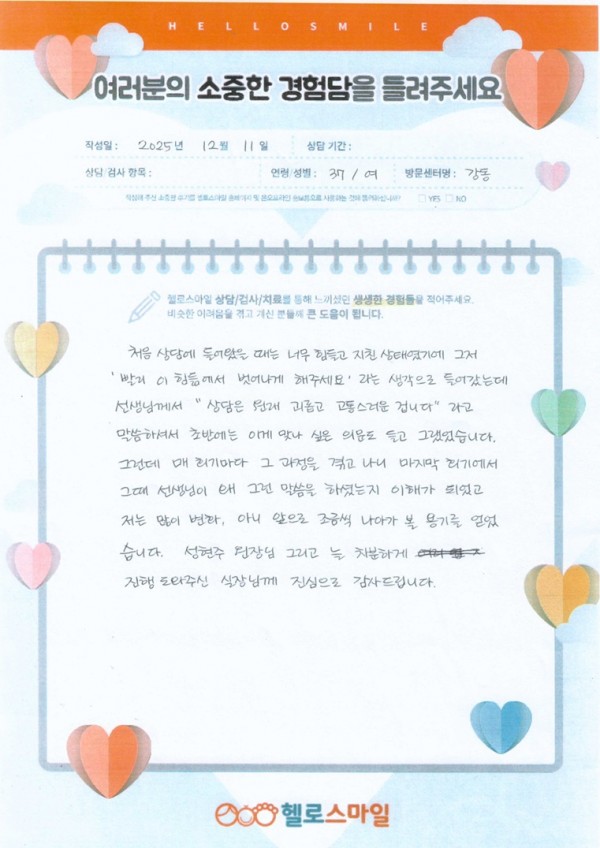 HELLOSMILE
여러분의 소중한 경험담을 들려주세요
작성일 : 2025년 12월 11일 상담 기간 :
상담/검사 항목 : 연령/성별 : 37 / 여 방문센터명 : 강동
작성해 주신 소중한 후기를 헬로스마일 홈페이지 및 온오프라인 홍보용으로 사용하는 것에 동의하십니까? YES NO
헬로스마일 상담/검사/치료를 통해 느끼셨던 생생한 경험들을 적어주세요.
비슷한 어려움을 겪고 계신 분들께 큰 도움이 됩니다.
처음 상담에 들어왔을 때는 너무 힘들고 지친 상태였기에 그저
'빨리 이 힘듦에서 벗어나게 해주세요' 라는 생각으로 들어갔는데
선생님께서 "상담은 원래 괴롭고 고통스러운 겁니다" 라고
말씀하셔서 초반에는 이게 맞나 싶은 의문도 들고 그랬었습니다.
그런데 매 회기마다 그 과정을 겪고 나니 마지막 회기에서
그때 선생님이 왜 그런 말씀을 하셨는지 이해가 되었고
저는 많이 변화, 아니 앞으로 조금씩 나아가 볼 용기를 얻었
습니다. 성현주 원장님 그리고 늘 차분하게
진행 도와주신 실장님께 진심으로 감사드립니다.
헬로스마일